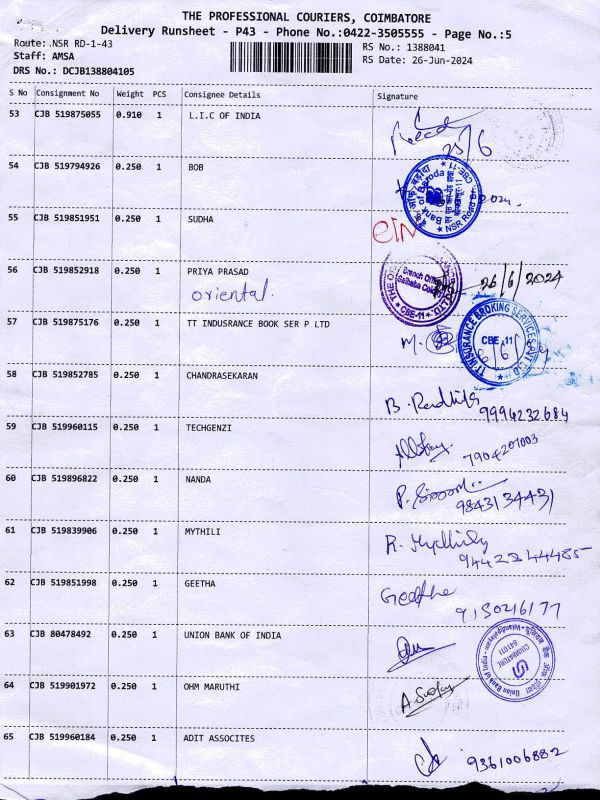 THE PROFESSIONAL COURIERS, COIMBATORE
Delivery Runsheet - P43 - Phone No.:0422-3505555 - Page No.:5
Route: NSR RD-1-43 RS No.: 1388041
Staff: AMSA RS Date: 26-Jun-2024
DRS No.: DCJB138804105
S No Consignment No Weight PCS Consignee Details Signature
53 CJB 519875055 0.910 1 L.I.C OF INDIA
54 CJB 519794926 0.250 1 BOB
Bank of Baroda
NSR Road
CBE-11
55 CJB 519851951 0.250 1 SUDHA
56 CJB 519852918 0.250 1 PRIYA PRASAD
oriental.
Branch Office
CBE-11
26/6/2024
57 CJB 519875176 0.250 1 TT INDUSRANCE BOOK SER P LTD
TT INSURANCE BROKING SERVICES PVT LTD
CBE 11
58 CJB 519852785 0.250 1 CHANDRASEKARAN
9994232684
59 CJB 519960115 0.250 1 TECHGENZI
7904207003
60 CJB 519896822 0.250 1 NANDA
9843134431
61 CJB 519839906 0.250 1 MYTHILI
R. Mythily
9442244485
62 CJB 519851998 0.250 1 GEETHA
Geetha
9150216177
63 CJB 80478492 0.250 1 UNION BANK OF INDIA
Union Bank of India
COIMBATORE
641011
64 CJB 519901972 0.250 1 OHM MARUTHI
65 CJB 519960184 0.250 1 ADIT ASSOCITES
9361006882